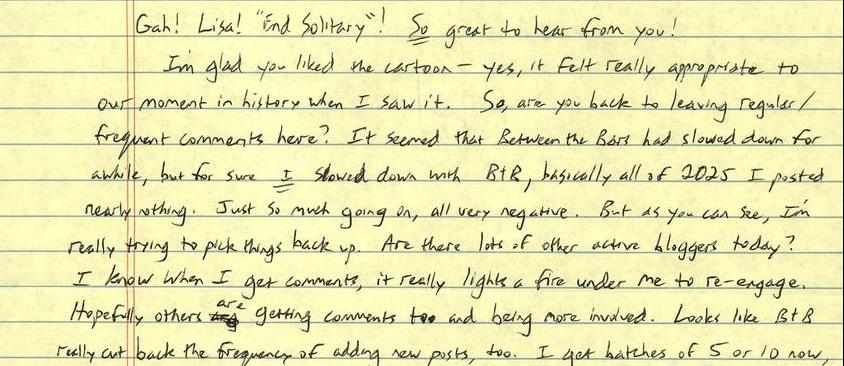 Gah! Lisa! "End Solitary"! So great to hear from you!
I'm glad you liked the cartoon – yes, it felt really appropriate to
our moment in history when I saw it. So, are you back to leaving regular/
frequent comments here? It seemed that Between the Bars had slowed down for
awhile, but for sure I slowed down with BtB, basically all of 2025 I posted
nearly nothing. Just so much going on, all very negative. But as you can see, I'm
really trying to pick things back up. Are there lots of other active bloggers today?
I know when I get comments, it really lights a fire under me to re-engage.
Hopefully others are getting comments too and being more involved. Looks like BtB
really cut back the frequency of adding new posts, too. I get batches of 5 or 10 now,